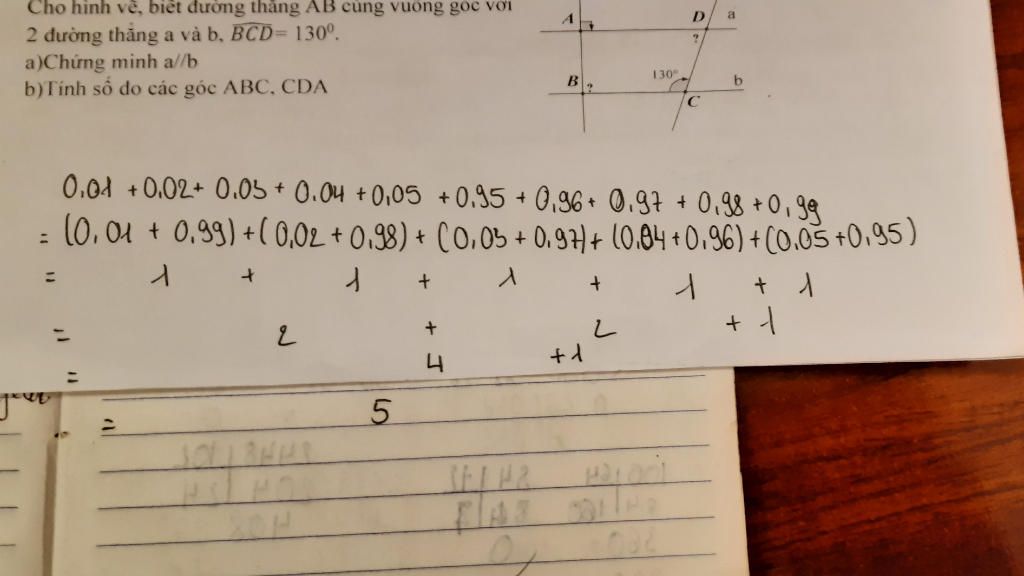 Cho hình vẽ, biết đường thẳng AB cùng vuông góc với
2 đường thẳng a và b, BCD = 130⁰.
a)Chứng minh a//b
b)Tính số đo các góc ABC, CDA
A D a
?
130⁰
B ? b
C
0,01 + 0,02 + 0,03 + 0.04 + 0,05 + 0,95 + 0,96 + 0,97 + 0,98 + 0,99
= (0,01 + 0,99) + (0,02 + 0,98) + (0,03 + 0,97) + (0,04 + 0,96) + (0,05 + 0,95)
= 1 + 1 + 1 + 1 + 1
= 2 + 2 + 1
= 4 + 1
= 5